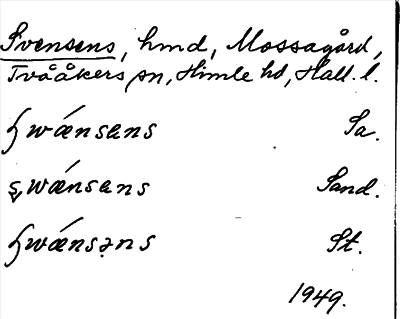 Svensens, hmd, Mossagård,
Tvååkers sn, Himle hd, Hall. l.
ɧwǽnsens Sa.
ʂwǽnsens Sand.
ɧwǽnsəns St.
1949.